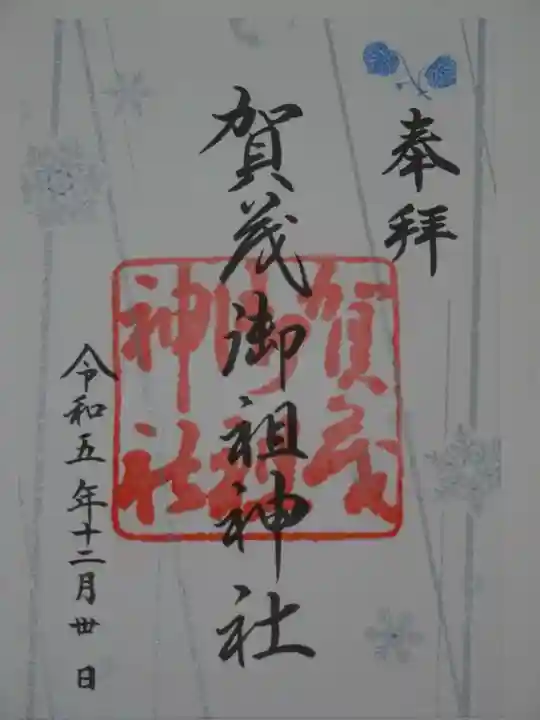 奉拝
賀茂御祖神社
賀茂
御祖
神社
令和五年十二月卅日